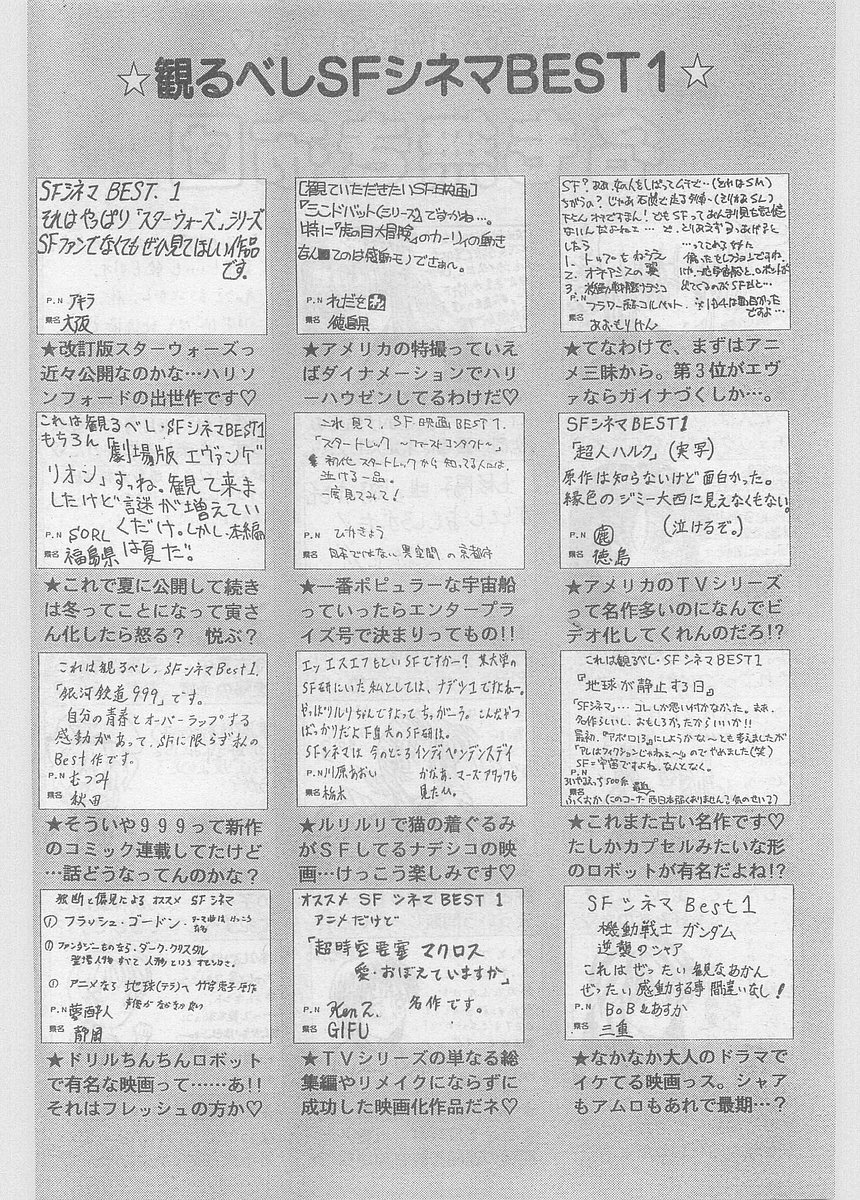 ☆観るべしSFシネマBEST1☆
SFシネマ BEST.1
それはやっぱり「スターウォーズ」シリーズ
SFファンでなくてもぜひ見てほしい作品
です。
P.N アキラ
県名 大阪
★改訂版スターウォーズっ
近々公開なのかな…ハリソ
ンフォードの出世作です♡
[観ていただきたいSF映画]
『シンドバット(シリーズ)』ですかね…。
特に『虎の目大冒険』のカーリィの動き
は感動モノですぁん。
P.N れだ
県名 徳島県
★アメリカの特撮っていえ
ばダイナメーションでハリ
ーハウゼンしてるわけだ♡
1. トップをねらえ
2. オネアミスの翼
あおもりけん
★てなわけで、まずはアニ
メ三昧から。第3位がエヴ
ァならガイナづくしか…。
これは観るべし・SFシネマBEST1
もちろん「劇場版 エヴァンゲ
リオン」すっね。観て来ま
したけど謎が増えてい
くだけ。しかし、本編
は夏だ。
P.N SORL
県名 福島県
★これで夏に公開して続き
は冬ってことになって寅さ
ん化したら怒る? 悦ぶ?
これ見て、SF映画BEST1.
「スタートレック ～ファーストコンタクト～」
初代スタートレックから知ってる人には、
泣ける一品。
一度見てみて!
P.N ひかきょう
県名 日本ではない異空間の京都府
★一番ポピュラーな宇宙船
っていったらエンタープラ
イズ号で決まりってもの!!
SFシネマBEST1
「超人ハルク」(実写)
原作は知らないけど面白かった。
緑色のジミー大西に見えなくもない。
(泣けるぞ。)
P.N 鹿
県名 徳島
★アメリカのTVシリーズ
って名作多いのになんでビ
デオ化してくれんのだろ!?
これは観るべし、SFシネマBest1.
「銀河鉄道999」です。
自分の青春とオーバーラップする
感動があって、SFに限らず私の
Best作です。
P.N むつみ
県名 秋田
★そういや999って新作
のコミック連載してたけど
…話どうなってんのかな?
エッ エスエフもといSFですかー? 某大学の
SF研にいた私としては、ナデシコですよねー。
やっぱりルリちゃんですよってちっがーう。こんなやつ
ばっかりだよ下自大のSF研は。
SFシネマは今のところインディペンデンスデイ
かなぁ、マーズアタックも
見たい。
P.N 川原あおい
県名 栃木
★ルリルリで猫の着ぐるみ
がSFしてるナデシコの映
画…けっこう楽しみです♡
これは観るべし・SFシネマBEST1
『地球が静止する日』
「SFシネマ」… コレしか思い付かなかった。まあ、
名作らしいし、おもしろかったからいいか!!
最初、『アポロ13』にしようかな～とも考えましたが
「アレはフィクションじゃねぇ～」のでやめました(笑)
SF=宇宙ですよね、なんとなく。
P.N
県名 ふくおか
★これまた古い名作です♡
たしかカプセルみたいな形
のロボットが有名だよね!?
独断と偏見による オススメ SFシネマ
① フラッシュ・ゴードン・テーマ曲はけっこう有名
① ファンタジーものなら、ダーク・クリスタル
登場人物すべて人形というすさまじさ。
① アニメなら 地球(テラ)へ 竹宮恵子原作
P.N 夢酉人
県名 静岡
★ドリルちんちんロボット
で有名な映画って……あ!!
それはフレッシュの方か♡
オススメ SFシネマ BEST 1
アニメだけど
「超時空要塞 マクロス
愛・おぼえていますか」
名作です。
P.N KenZ.
県名 GIFU
★TVシリーズの単なる総
集編やリメイクにならずに
成功した映画化作品だネ♡
SFシネマ Best1
機動戦士 ガンダム
逆襲のシャア
これはぜったい観なあかん
ぜったい感動する事間違いなし!
P.N BoB&あすか
県名 三重
★なかなか大人のドラマで
イケてる映画っス。シャア
もアムロもあれで最期…?